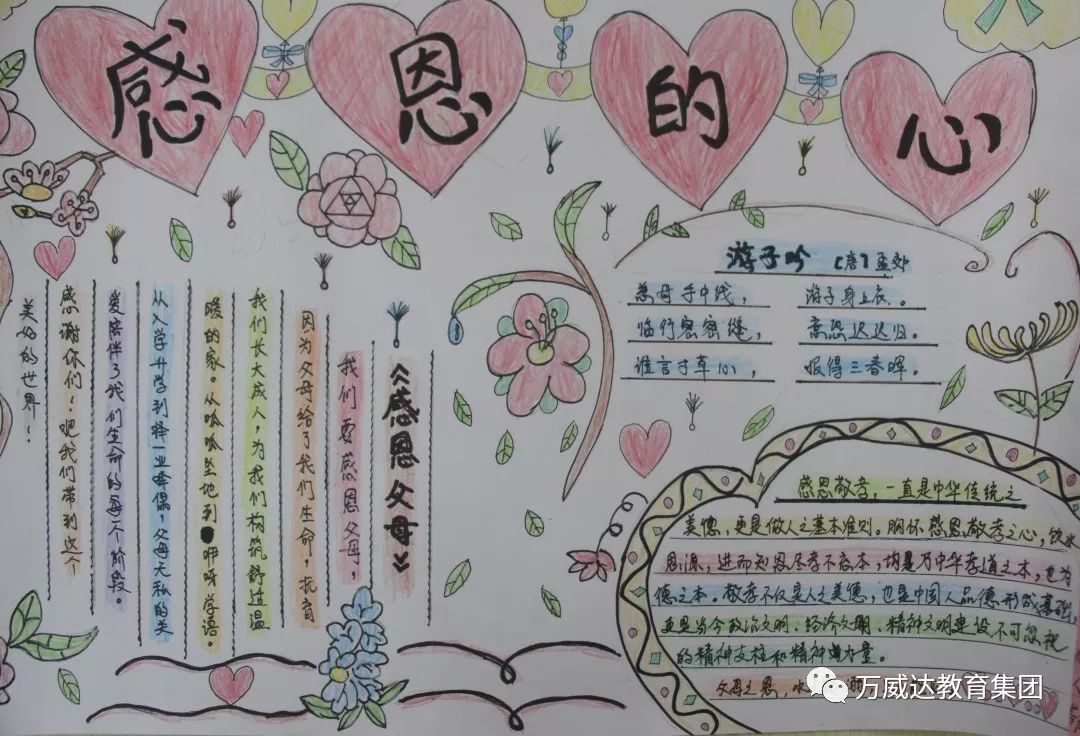 感恩的心
《感恩父母》
我们要感恩父母,
因为父母给了我们生命,抚育
我们长大成人,为我们构筑舒适温
暖的家。从呱呱坠地到咿呀学语。
从入学升学到择业择偶,父母无私的关
爱陪伴了我们生命的每一个阶段。
感谢你们!把我们带到这个
美好的世界!
游子吟 [唐]孟郊
慈母手中线, 游子身上衣。
临行密密缝, 意恐迟迟归。
谁言寸草心, 报得三春晖。
感恩敬孝,一直是中华传统之
美德,更是做人之基本准则。胸怀感恩敬孝之心,饮水
思源,进而知恩尽孝不忘本,均是万中华孝道之本,也为
德之本。敬孝不仅是人之美德,也是中国人品德形成基础,
更是当今政治文明、经济文明、精神文明建设不可忽视
的精神支柱和精神力量。
父母之恩,水
万威达教育集团